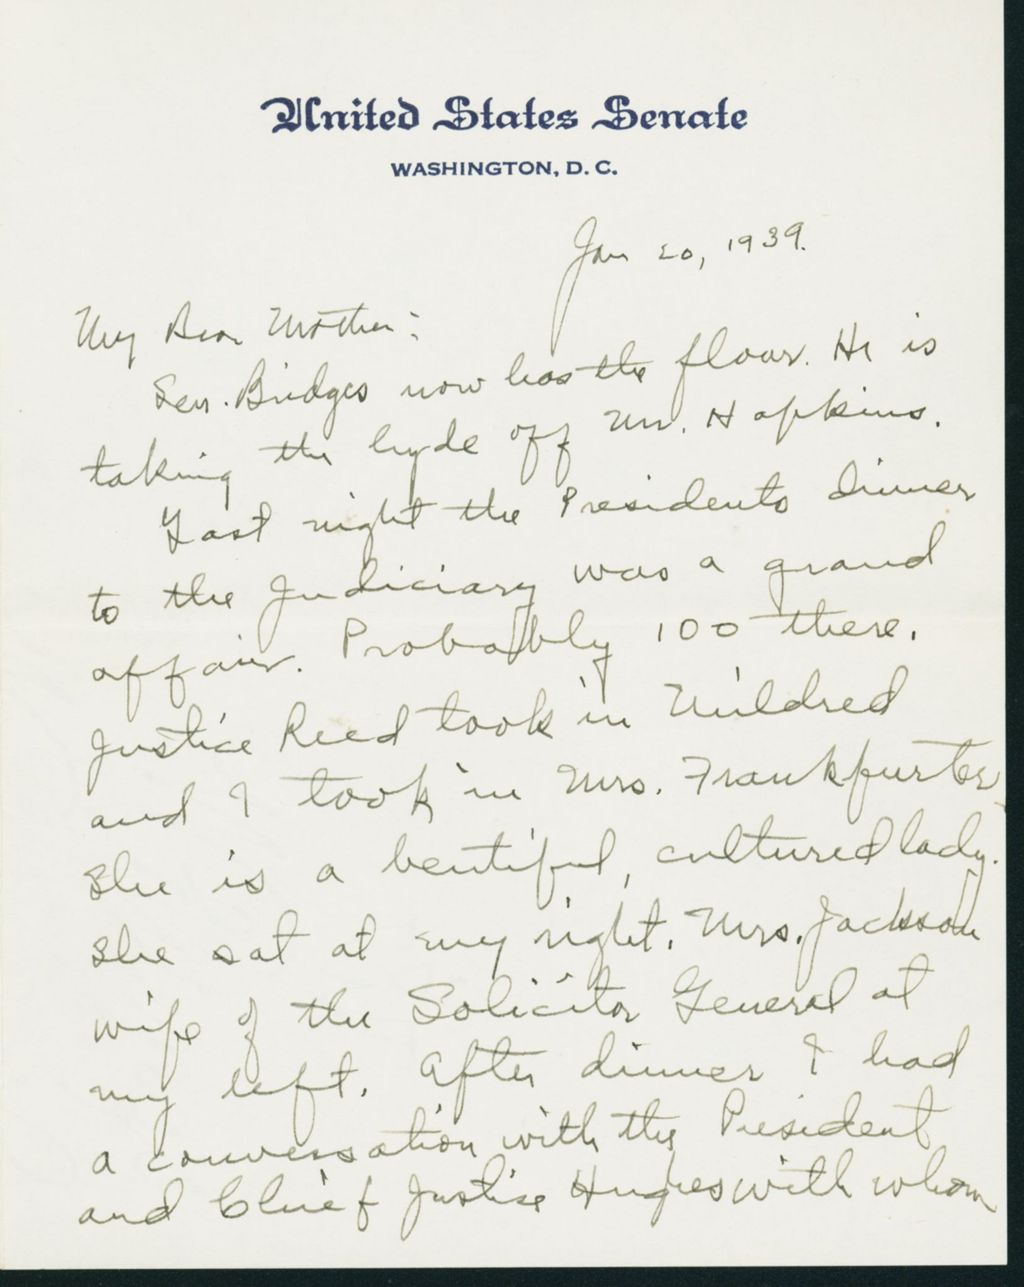 United States Senate
WASHINGTON, D. C.
Jan 20, 1939.
My Dear Mother:
Sen. Bridges now has the floor. He is
taking the hyde off Mr. Hopkins.
Last night the Presidents dinner
to the Judiciary was a grand
affair. Probably 100 there.
Justice Reed took in Mildred
and I took in Mrs. Frankfurter.
She is a beutiful, cultured lady.
She sat at my right. Mrs. Jackson
wife of the Solicitor General at
my left. After dinner I had
a conversation with the President
and Chief Justice Hughes with whom